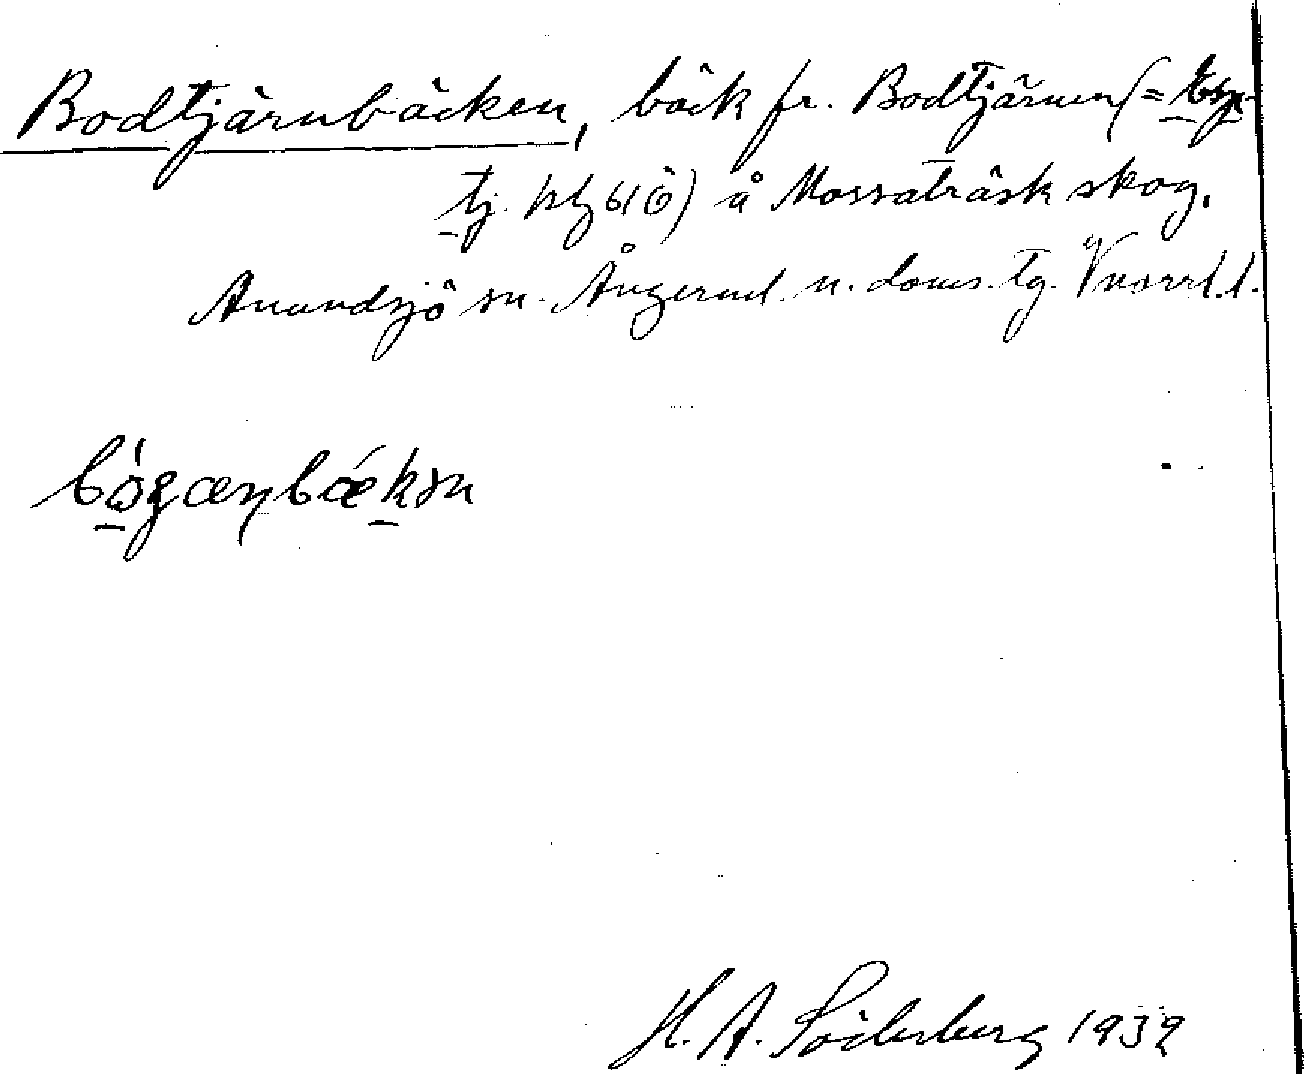 Bodtjärnbäcken, bäck fr. Bodtjärnen (=
tj. kbl 61 Ö) å Mossaträsk skog.
Anundsjö sn. Ångerml. n. doms. tg. Vnorrl. l.
H. A. Söderberg 1939